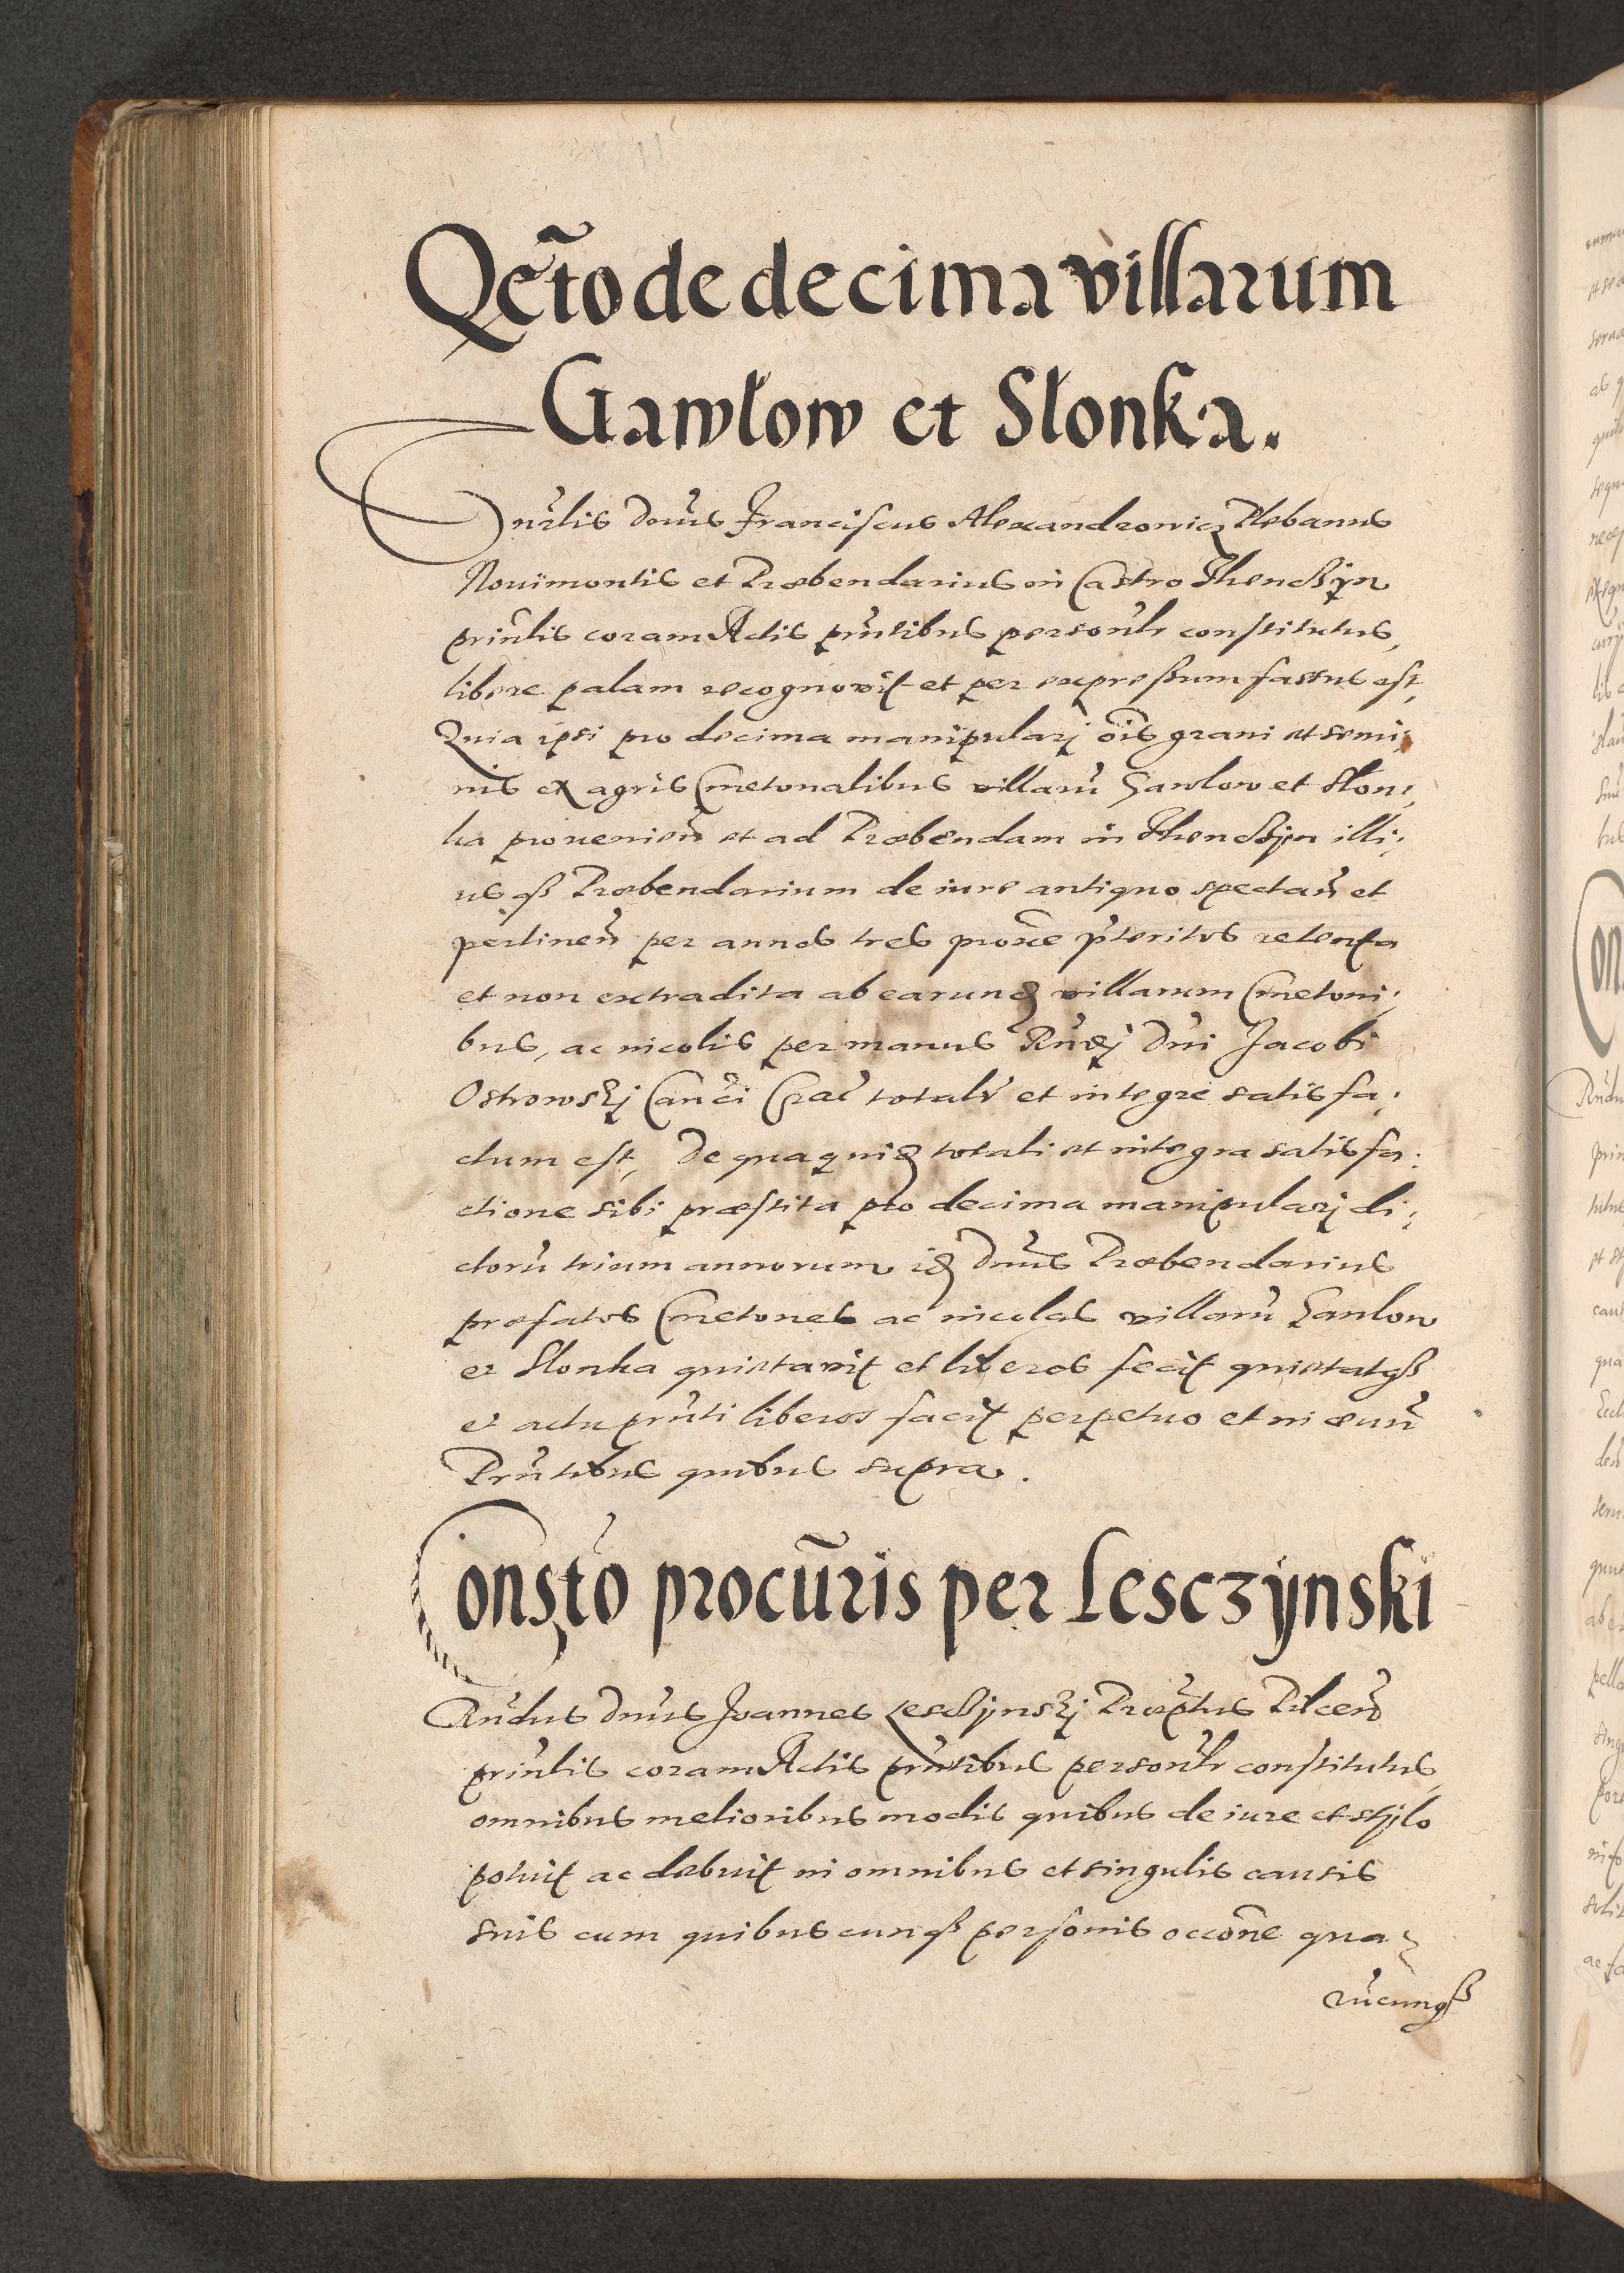 Qc̃to de decima villarum
Gawlow et Slonka.
Dnr̃lis Dnũs Franciscus Alexandrowicz Plebanus
Nouimontis et Præbendarius in Castro Thenczÿn
prinr̃lis coram Actis pñtibus personlr̃ constitutus,
libere palam recognovit et per expressum fassus est,
Quia ipsi pro decima manipularj oĩs grani et semi;
nis ex agris Cmetonalibus villarũ Gawlow et Slon;
ka prouenieñ et ad Præbendam in Thenczyn illi;
usq3 Præbendarium de iure antiquo spectañ et
pertineñ per annos tres proxẽ p̃teritos retenta
et non extradita ab earund villarum Cmetoni;
bus, ac incolis per manus Rnd̃j Dnĩ Jacobi
Ostrowskj Canc̃i Crac̃ totalr̃ et integre satisfa;
ctum est, De qua quid totali et integra satisfa;
ctione sibi præstita pro decima manipularj di;
ctorũ trium annorum id Dnũs Præbendarius
præfatos Cmetones ac incolas villarũ Gawlow
et Slonka quietavit et liberos fecit quietatq3
et actu pñti liberos facit perpetuo et in æuũ
Prñtibus quibus supra.
Consto procur̃is per Lesczÿnski
Rñdus Dnũs Joannes Lesczynskj Præptus Pilceñ
prinr̃lis coram Actis pñtibus personlr̃ constitutus,
omnibus melioribus modis quibus de iure et stylo
potuit ac debuit in omnibus et singulis causis
suis cum quibuscunq3 personis occõne qua
rũcunq3